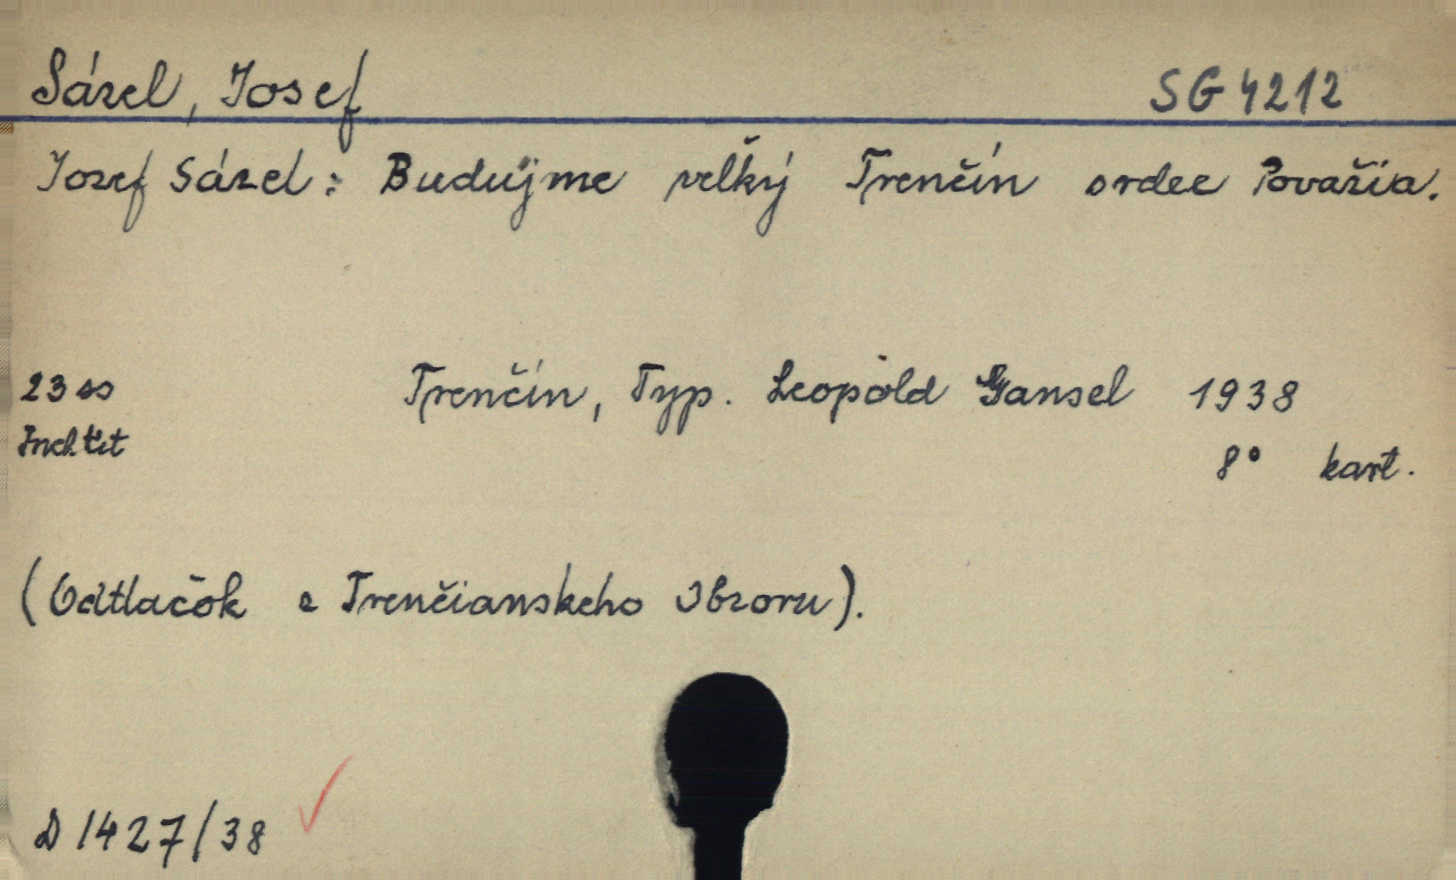 Sázel, Josef SG 4212
Jozef Sázel: Budujme veľký Trenčín srdce Považia.
23 ss Trenčín, Typ. Leopold Gansel 1938
Incl. tit 8° kart.
(Odtlačok z Trenčianskeho Obzoru).
D 1427/38